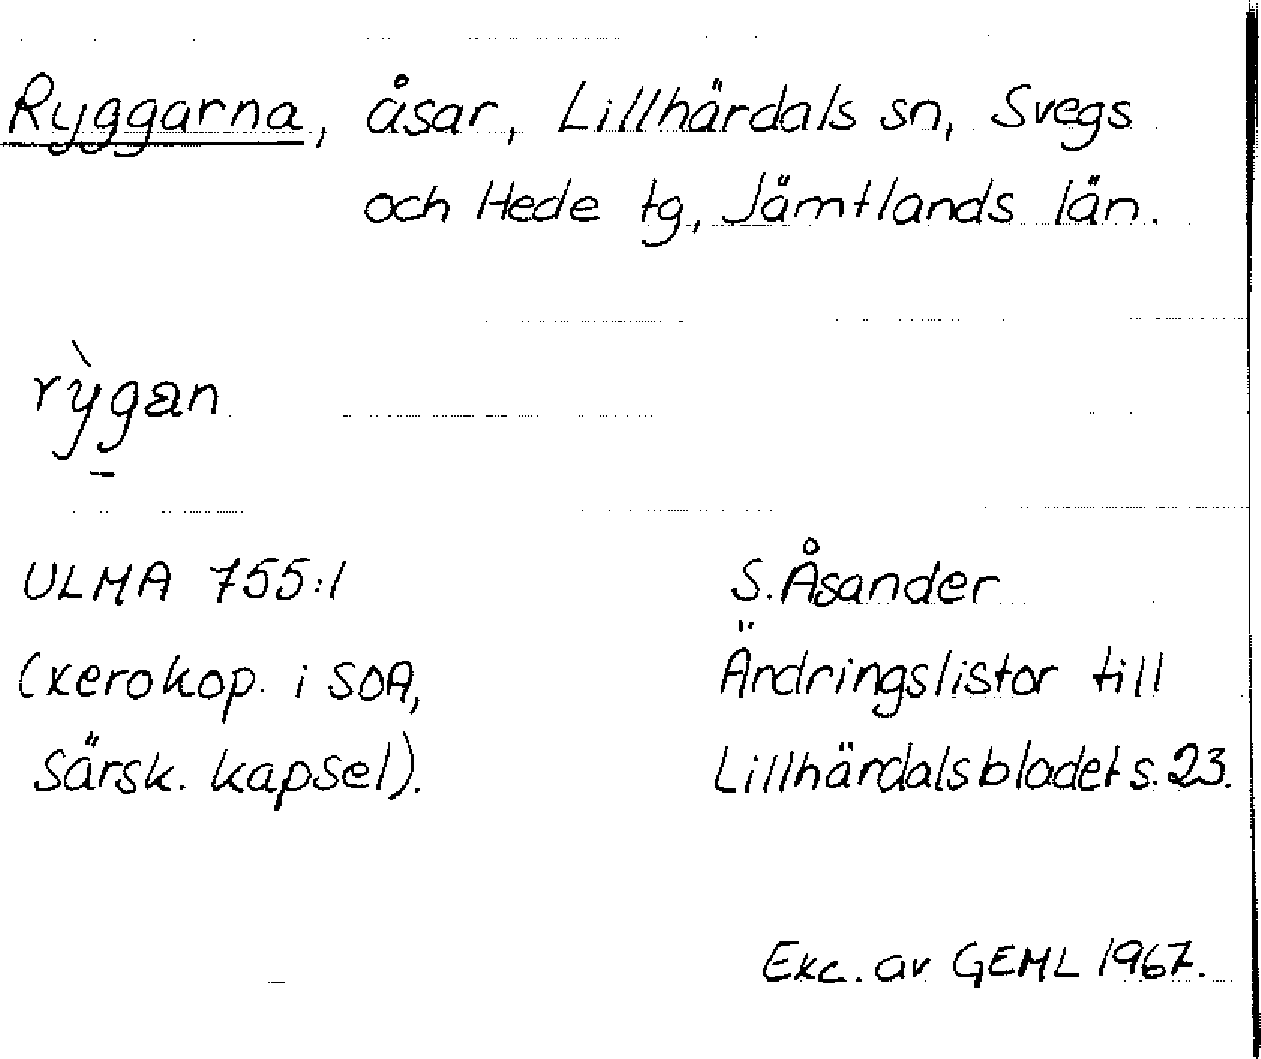 Ryggarna, åsar, Lillhärdals sn, Svegs
och Hede tg, Jämtlands län.
rỳgan
ULMA 755:1
(xerokop. i SOA,
särsk. kapsel).
S. Åsander
Ändringslistor till
Lillhärdalsbladet s. 23.
Exc. av GEML 1967.